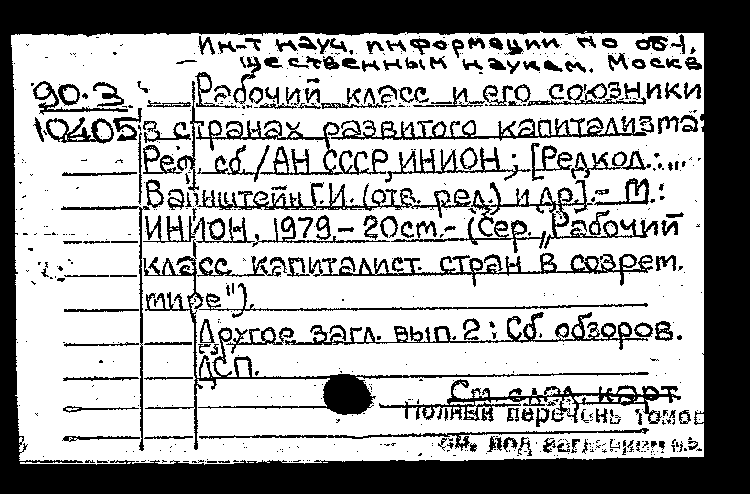 Ин-т науч. информации по об-
щественным наукам. Москв
90-3 Рабочий класс и его союзники
10405 в странах развитого капитализма:
Реф. сб. / АН СССР, ИНИОН ; [Редкол.:...
Вайнштейн Г.И. (отв. ред.) и др]. - М.:
ИНИОН, 1979. - 20 см. - (Сер. „Рабочий
класс капиталист. стран в соврем.
мире").
Другое загл. вып. 2 : Сб. обзоров.
ДСП.
См. след. карт.
Полный перечень томов
см. под заглавием